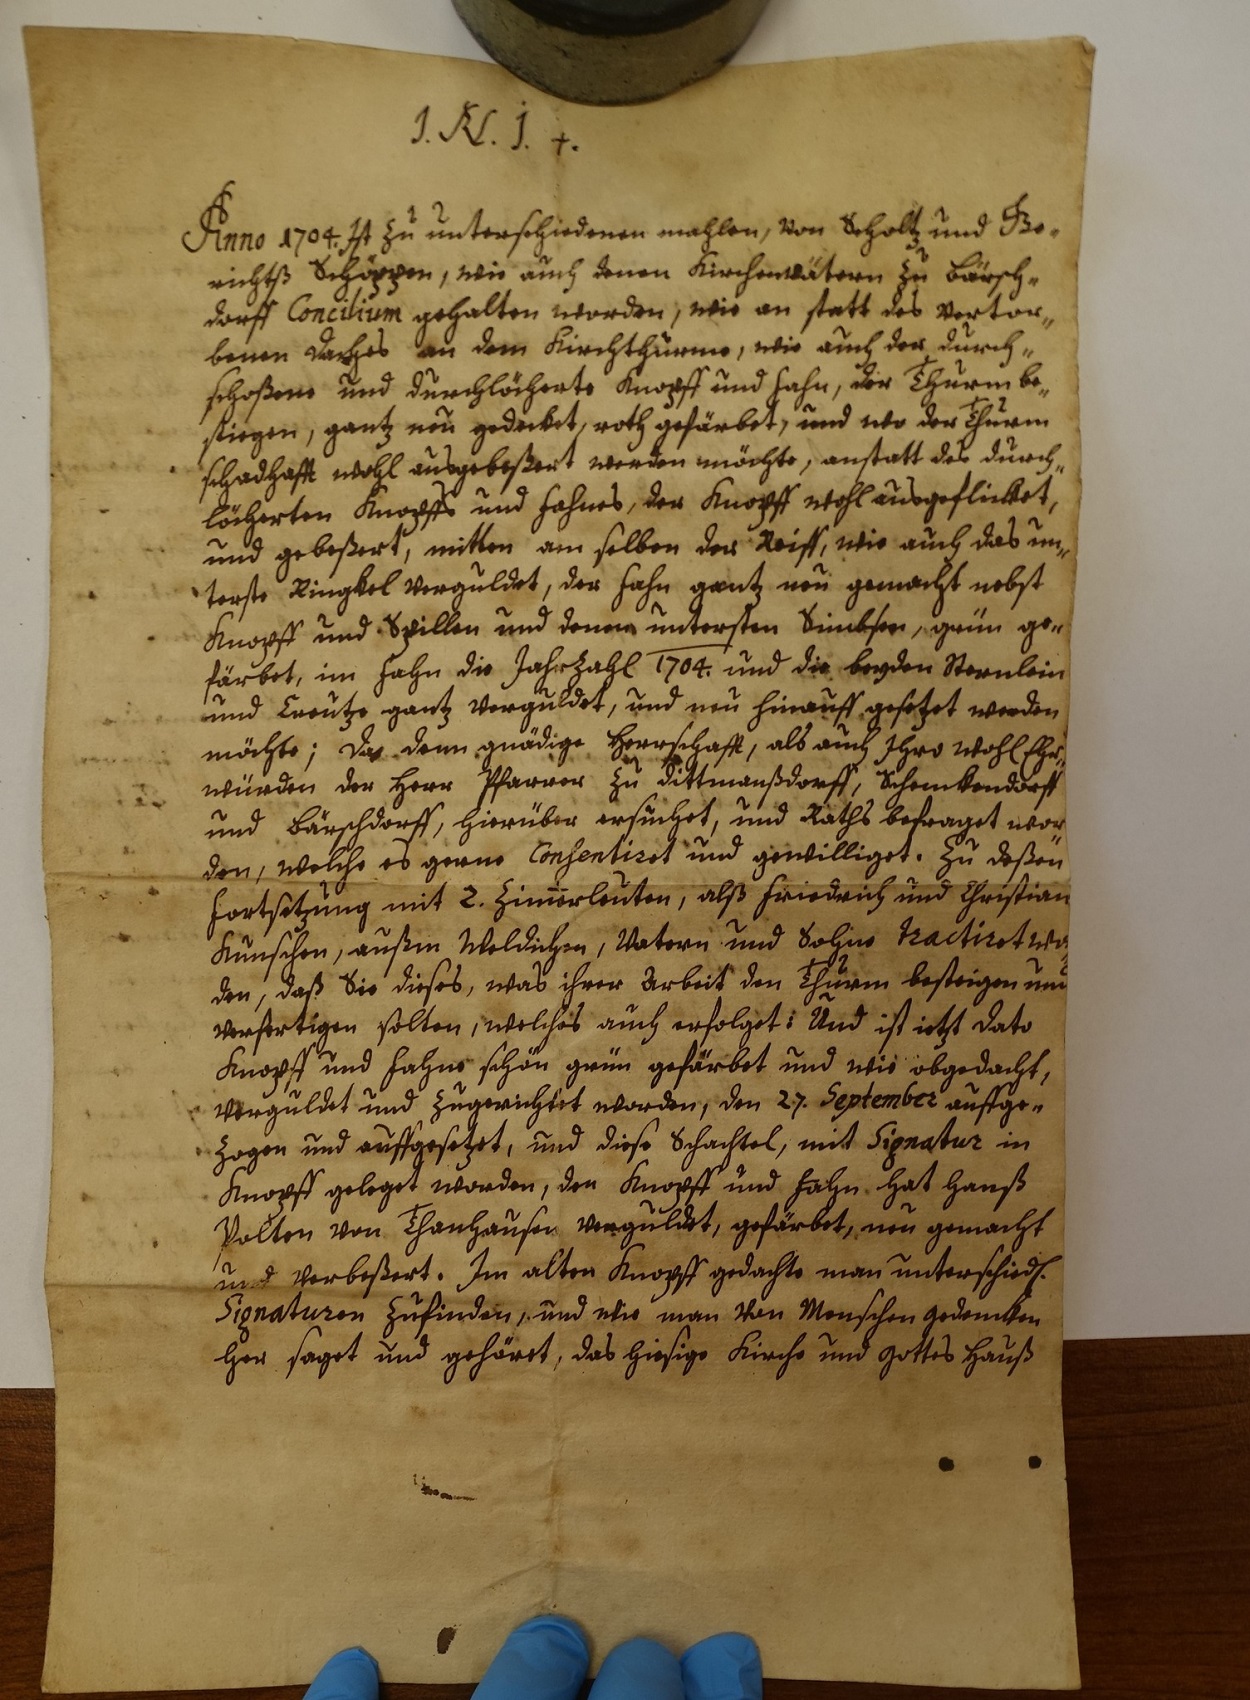 J. N. J. +.
Anno 1704. Ist zu unterschiedenen mahlen, von Scholtz und Ge-
richtß Schöppen, wie auch denen Kirchenvätern zu Bärsch-
dorff Concilium gehalten worden, wie an statt des verdor-
benen Daches an dem Kirchthurme, wie auch der durch-
schoßene und durchlöcherte Knopff und Hahn, der Thurm be-
stiegen, gantz neu gedecket, roth gefärbet, und wo der Thurm
schadhafft wohl ausgebeßert werden möchte, anstatt des durch-
löcherten Knopffs und Hahnes, der Knopff wohl ausgeflicket,
und gebeßert, mitten am selben der Reiff, wie auch das un-
terste Ringkel verguldet, der Hahn gantz neu gemacht nebst
Knopff und Spillen und denen untersten Simbsen, grün ge-
färbet, im Hahn die Jahrzahl 1704. und die beyden Sternlein
und Creutze gantz verguldet, und neu hinauff gesetzet werden
möchte; Da denn gnädige Herrschafft, als auch Ihro wohl Ehr-
würden der Herr Pfarrer zu Dittmanßdorff, Schenkendorff
und Bärschdorff, hierüber ersuchet, und Raths befraget wor
den, welche es gerne Consentiret und gewilliget. Zu deßen
Fortsetzung mit 2. Zimerleuten, alß Friedrich und Christian
Kunschen, außm Weldichen, Vatern und Sohne tractiret wo
den, daß Sie dieses, was ihrer Arbeit den Thurm besteigen und
verfertigen solten, welches auch erfolget: Und ist ietzt dato
Knopff und Hahne schön grün gefärbet und wie obgedacht,
verguldet und zugerichtet worden, den 27. September auffge-
zogen und auffgesetzet, und diese Schachtel, mit Signatur in
Knopff geleget worden, den Knopff und Hahn hat Hanß
Polten von Thanhausen verguldet, gefärbet, neu gemacht
und verbeßert. Im alten Knopff gedachte man unterschiedl.
Signaturen zufinden, und wie man von Menschen gedencken
her saget und gehöret, das hiesige Kirche und Gottes Hauß